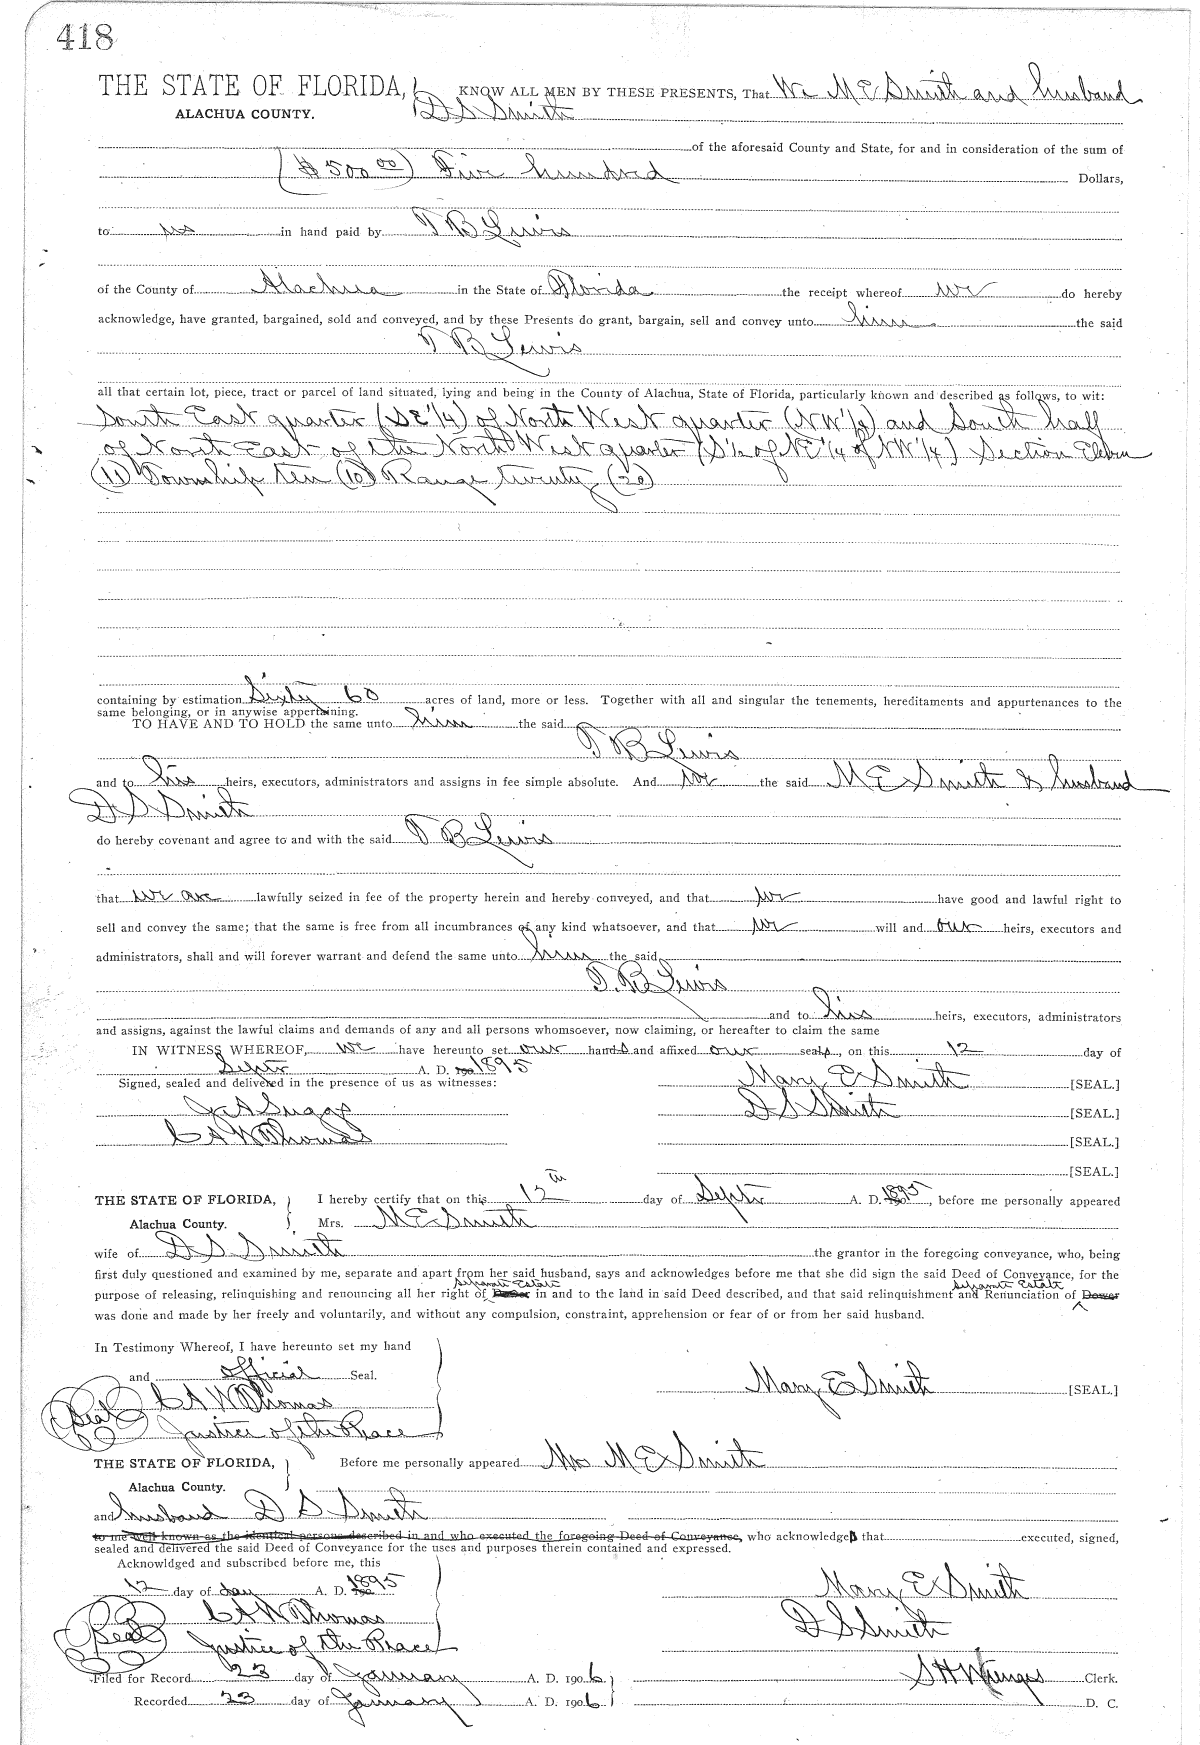 418
THE STATE OF FLORIDA, KNOW ALL MEN BY THESE PRESENTS, That We M E Smith and husband
ALACHUA COUNTY. D S Smith
of the aforesaid County and State, for and in consideration of the sum of
($500 00) Five hundred Dollars,
to us in hand paid by T B Lewis
of the County of Alachua in the State of Florida the receipt whereof we do hereby
acknowledge, have granted, bargained, sold and conveyed, and by these Presents do grant, bargain, sell and convey unto him the said
T B Lewis
all that certain lot, piece, tract or parcel of land situated, lying and being in the County of Alachua, State of Florida, particularly known and described as follows, to wit:
South East quarter (SE 1/4) of North West quarter (NW 1/4) and South half
of North East of the North West quarter (S 1/2 of NE 1/4 of NW 1/4) Section Eleven
(11) Township ten (10) Range twenty (20)
containing by estimation Sixty 60 acres of land, more or less. Together with all and singular the tenements, hereditaments and appurtenances to the
same belonging, or in anywise appertaining.
TO HAVE AND TO HOLD the same unto him the said
T B Lewis
and to his heirs, executors, administrators and assigns in fee simple absolute. And we the said M E Smith & husband
D S Smith
do hereby covenant and agree to and with the said T B Lewis
that we are lawfully seized in fee of the property herein and hereby conveyed, and that we have good and lawful right to
sell and convey the same; that the same is free from all incumbrances of any kind whatsoever, and that we will and our heirs, executors and
administrators, shall and will forever warrant and defend the same unto him the said
T. B Lewis
and to his heirs, executors, administrators
and assigns, against the lawful claims and demands of any and all persons whomsoever, now claiming, or hereafter to claim the same
IN WITNESS WHEREOF, we have hereunto set our hands and affixed our seals, on this 12 day of
Septr A. D. 1895
Signed, sealed and delivered in the presence of us as witnesses: Mary E Smith [SEAL.]
J A Suggs D S Smith [SEAL.]
C A W Thomas [SEAL.]
[SEAL.]
THE STATE OF FLORIDA, I hereby certify that on this 12th day of Septr A. D. 1895, before me personally appeared
Alachua County. Mrs. M E Smith
wife of D S Smith the grantor in the foregoing conveyance, who, being
first duly questioned and examined by me, separate and apart from her said husband, says and acknowledges before me that she did sign the said Deed of Conveyance, for the
Separate Estate Separate Estate
purpose of releasing, relinquishing and renouncing all her right of Dower in and to the land in said Deed described, and that said relinquishment and Renunciation of Dower
was done and made by her freely and voluntarily, and without any compulsion, constraint, apprehension or fear of or from her said husband.
In Testimony Whereof, I have hereunto set my hand
and official Seal. Mary E Smith [SEAL.]
Seal C A W Thomas
Justice of the Peace
THE STATE OF FLORIDA, Before me personally appeared Mrs M E Smith
Alachua County.
and husband D S Smith
to me well known as the identical persons described in and who executed the foregoing Deed of Conveyance, who acknowledged that executed, signed,
sealed and delivered the said Deed of Conveyance for the uses and purposes therein contained and expressed.
Acknowldged and subscribed before me, this
12 day of day A. D. 1895 Mary E Smith
Seal C A W Thomas D S Smith
Justice of the Peace
Filed for Record 23 day of January A. D. 1906 S H Wienges Clerk.
Recorded 23 day of January A. D. 1906 D. C.